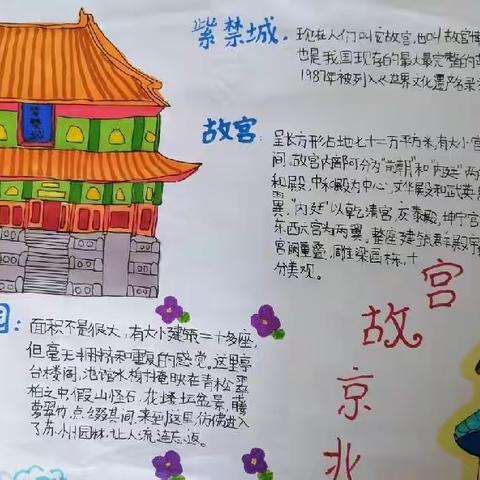 紫禁城.
现在人们叫它故宫,也叫故宫博
也是我国现存的最大最完整的古
1987年被列入《世界文化遗产名录
故宫:
呈长方形占地七十二万平方米,有大小宫
间,故宫内部可分为"前朝"和"内廷"两
和殿、中和殿为中心,文华殿和武英殿
翼,"内廷"以乾清宫、交泰殿、坤宁宫
东西六宫为两翼。整座建筑群殿宇
宫阙重叠,雕梁画栋,十
分美观。
园:
面积不是很大,有大小建筑二十多座,
但毫无拥挤和重复的感觉。这里亭
台楼阁,池馆水榭,掩映在青松翠
柏之中,假山怪石,花坛盆景,藤
萝翠竹,点缀其间,来到这里,仿佛进入
了苏州园林,让人流连忘返。
宫
故
京
北